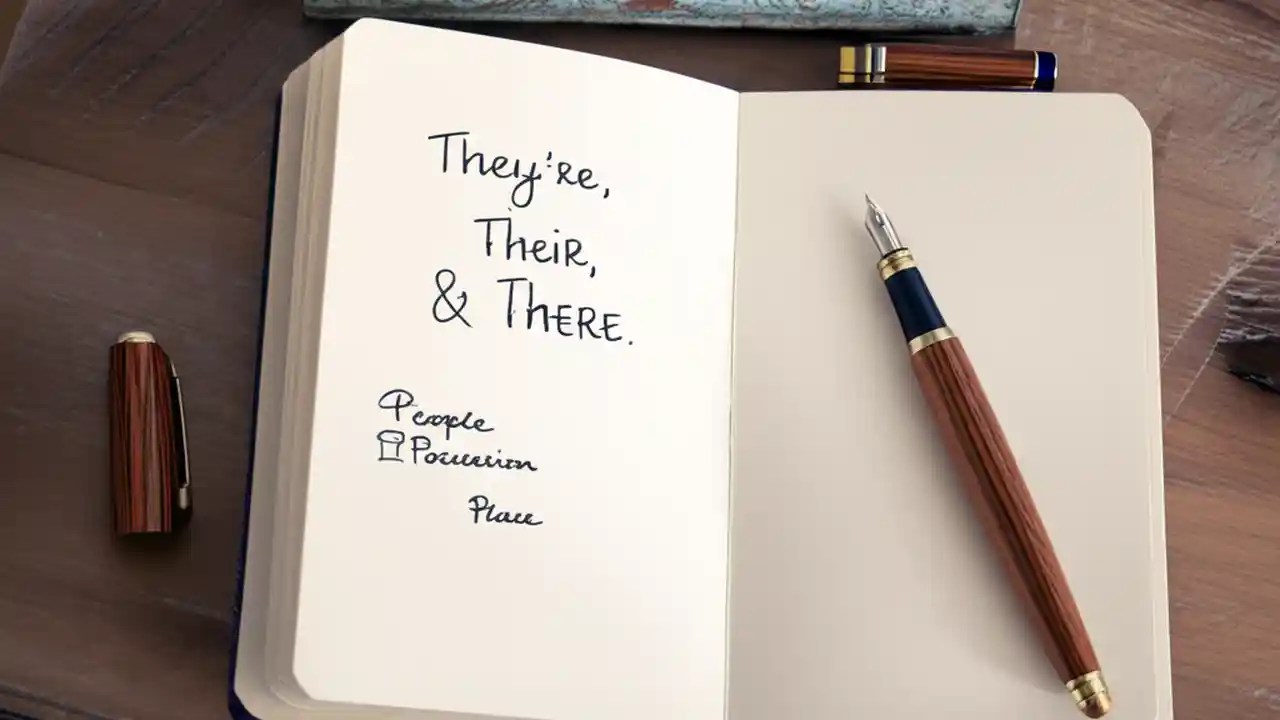 They're,
Their,
& THERE.
People
Possession
Place